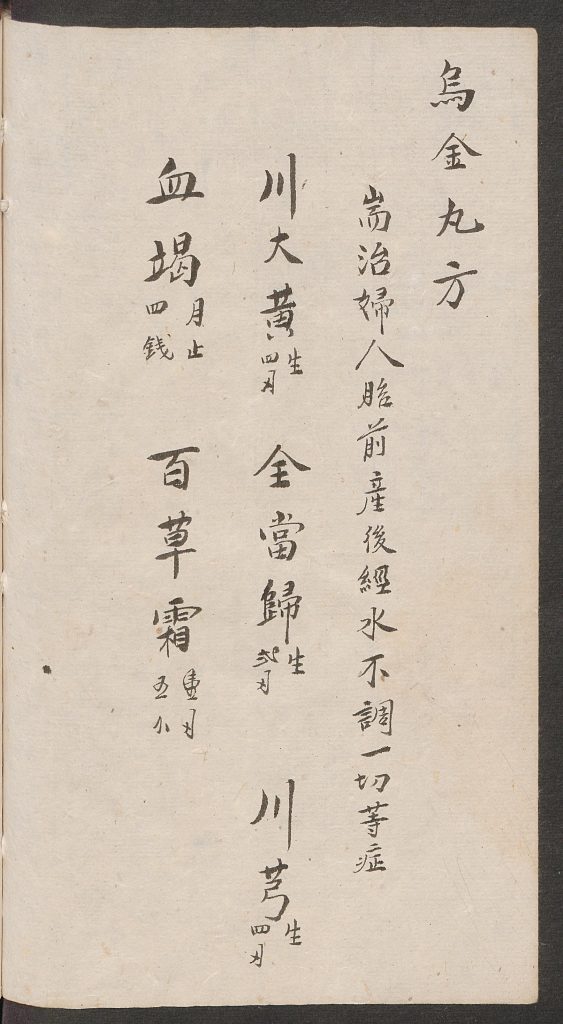 烏金丸方
耑治婦人胎前産後經水不調一切等症
川大黃生四刄 全當歸生弍刄 川芎生四刄
血竭月止四銭 百草霜壹刄五